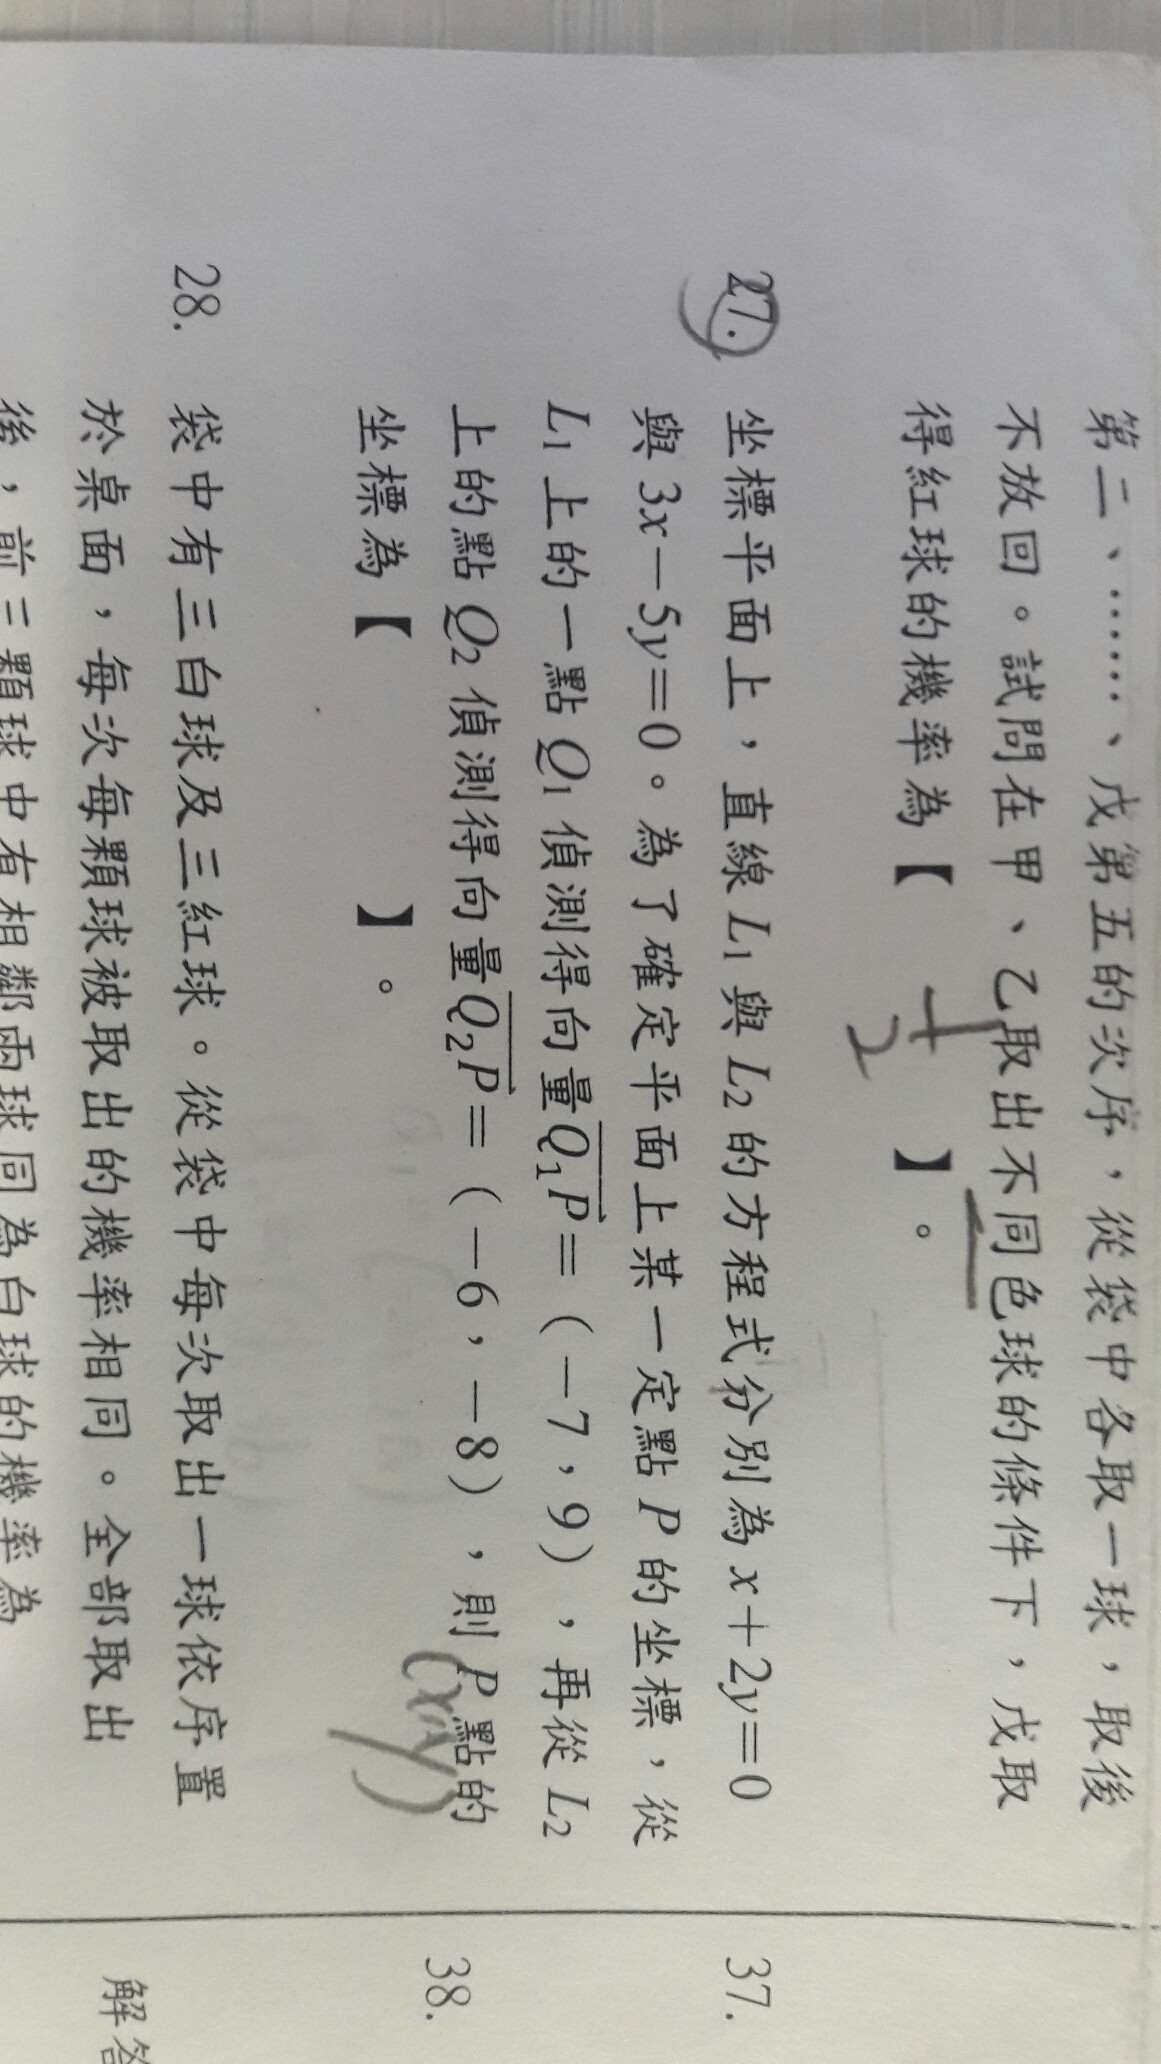 第二、……、戊第五的次序，從袋中各取一球，取後
不放回。試問在甲、乙取出不同色球的條件下，戊取
得紅球的機率為【 1/2 】。
27. 坐標平面上，直線 L₁ 與 L₂ 的方程式分別為 x＋2y＝0
與 3x－5y＝0。為了確定平面上某一定點 P 的坐標，從
L₁ 上的一點 Q₁ 偵測得向量Q₁P＝（－7，9），再從 L₂
上的點 Q₂ 偵測得向量Q₂P＝（－6，－8），則 P 點的
(x,y)
坐標為【 】。
28. 袋中有三白球及三紅球。從袋中每次取出一球依序置
於桌面，每次每顆球被取出的機率相同。全部取出
後，前三顆球中有相鄰兩球同為白球的機率為
37.
38.
解答